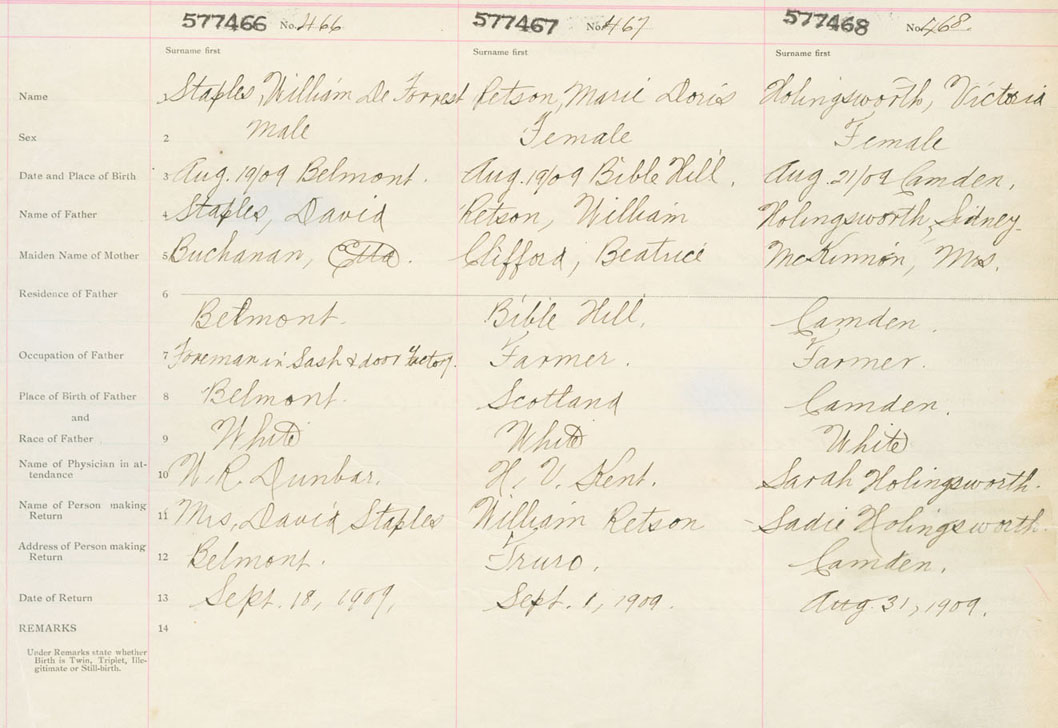 577466 No. 466 577467 No. 467 577468 No. 468
Surname first Surname first Surname first
Name 1 Staples, William De Forrest Retson, Marie Doris Holingsworth, Victoria
Sex 2 Male Female Female
Date and Place of Birth 3 Aug. 19/09 Belmont. Aug. 19/09 Bible Hill. Aug. 21/09 Camden.
Name of Father 4 Staples, David Retson, William Holingsworth, Sidney
Maiden Name of Mother 5 Buchanan, Etta. Clifford, Beatrice McKinnon, Mrs.
Residence of Father 6
Belmont. Bible Hill. Camden.
Occupation of Father 7 Foreman in Sash & door factory. Farmer. Farmer.
Place of Birth of Father 8 Belmont. Scotland Camden.
and
Race of Father 9 White White White
Name of Physician in at-
tendance 10 W. R. Dunbar. H. V. Kent. Sarah Holingsworth.
Name of Person making
Return 11 Mrs, David Staples William Retson Sadie Holingsworth.
Address of Person making
Return 12 Belmont. Truro. Camden.
Date of Return 13 Sept. 18, 1909, Sept. 1, 1909. Aug. 31, 1909.
REMARKS 14
Under Remarks state whether
Birth is Twin, Triplet, Ille-
gitimate or Still-birth.